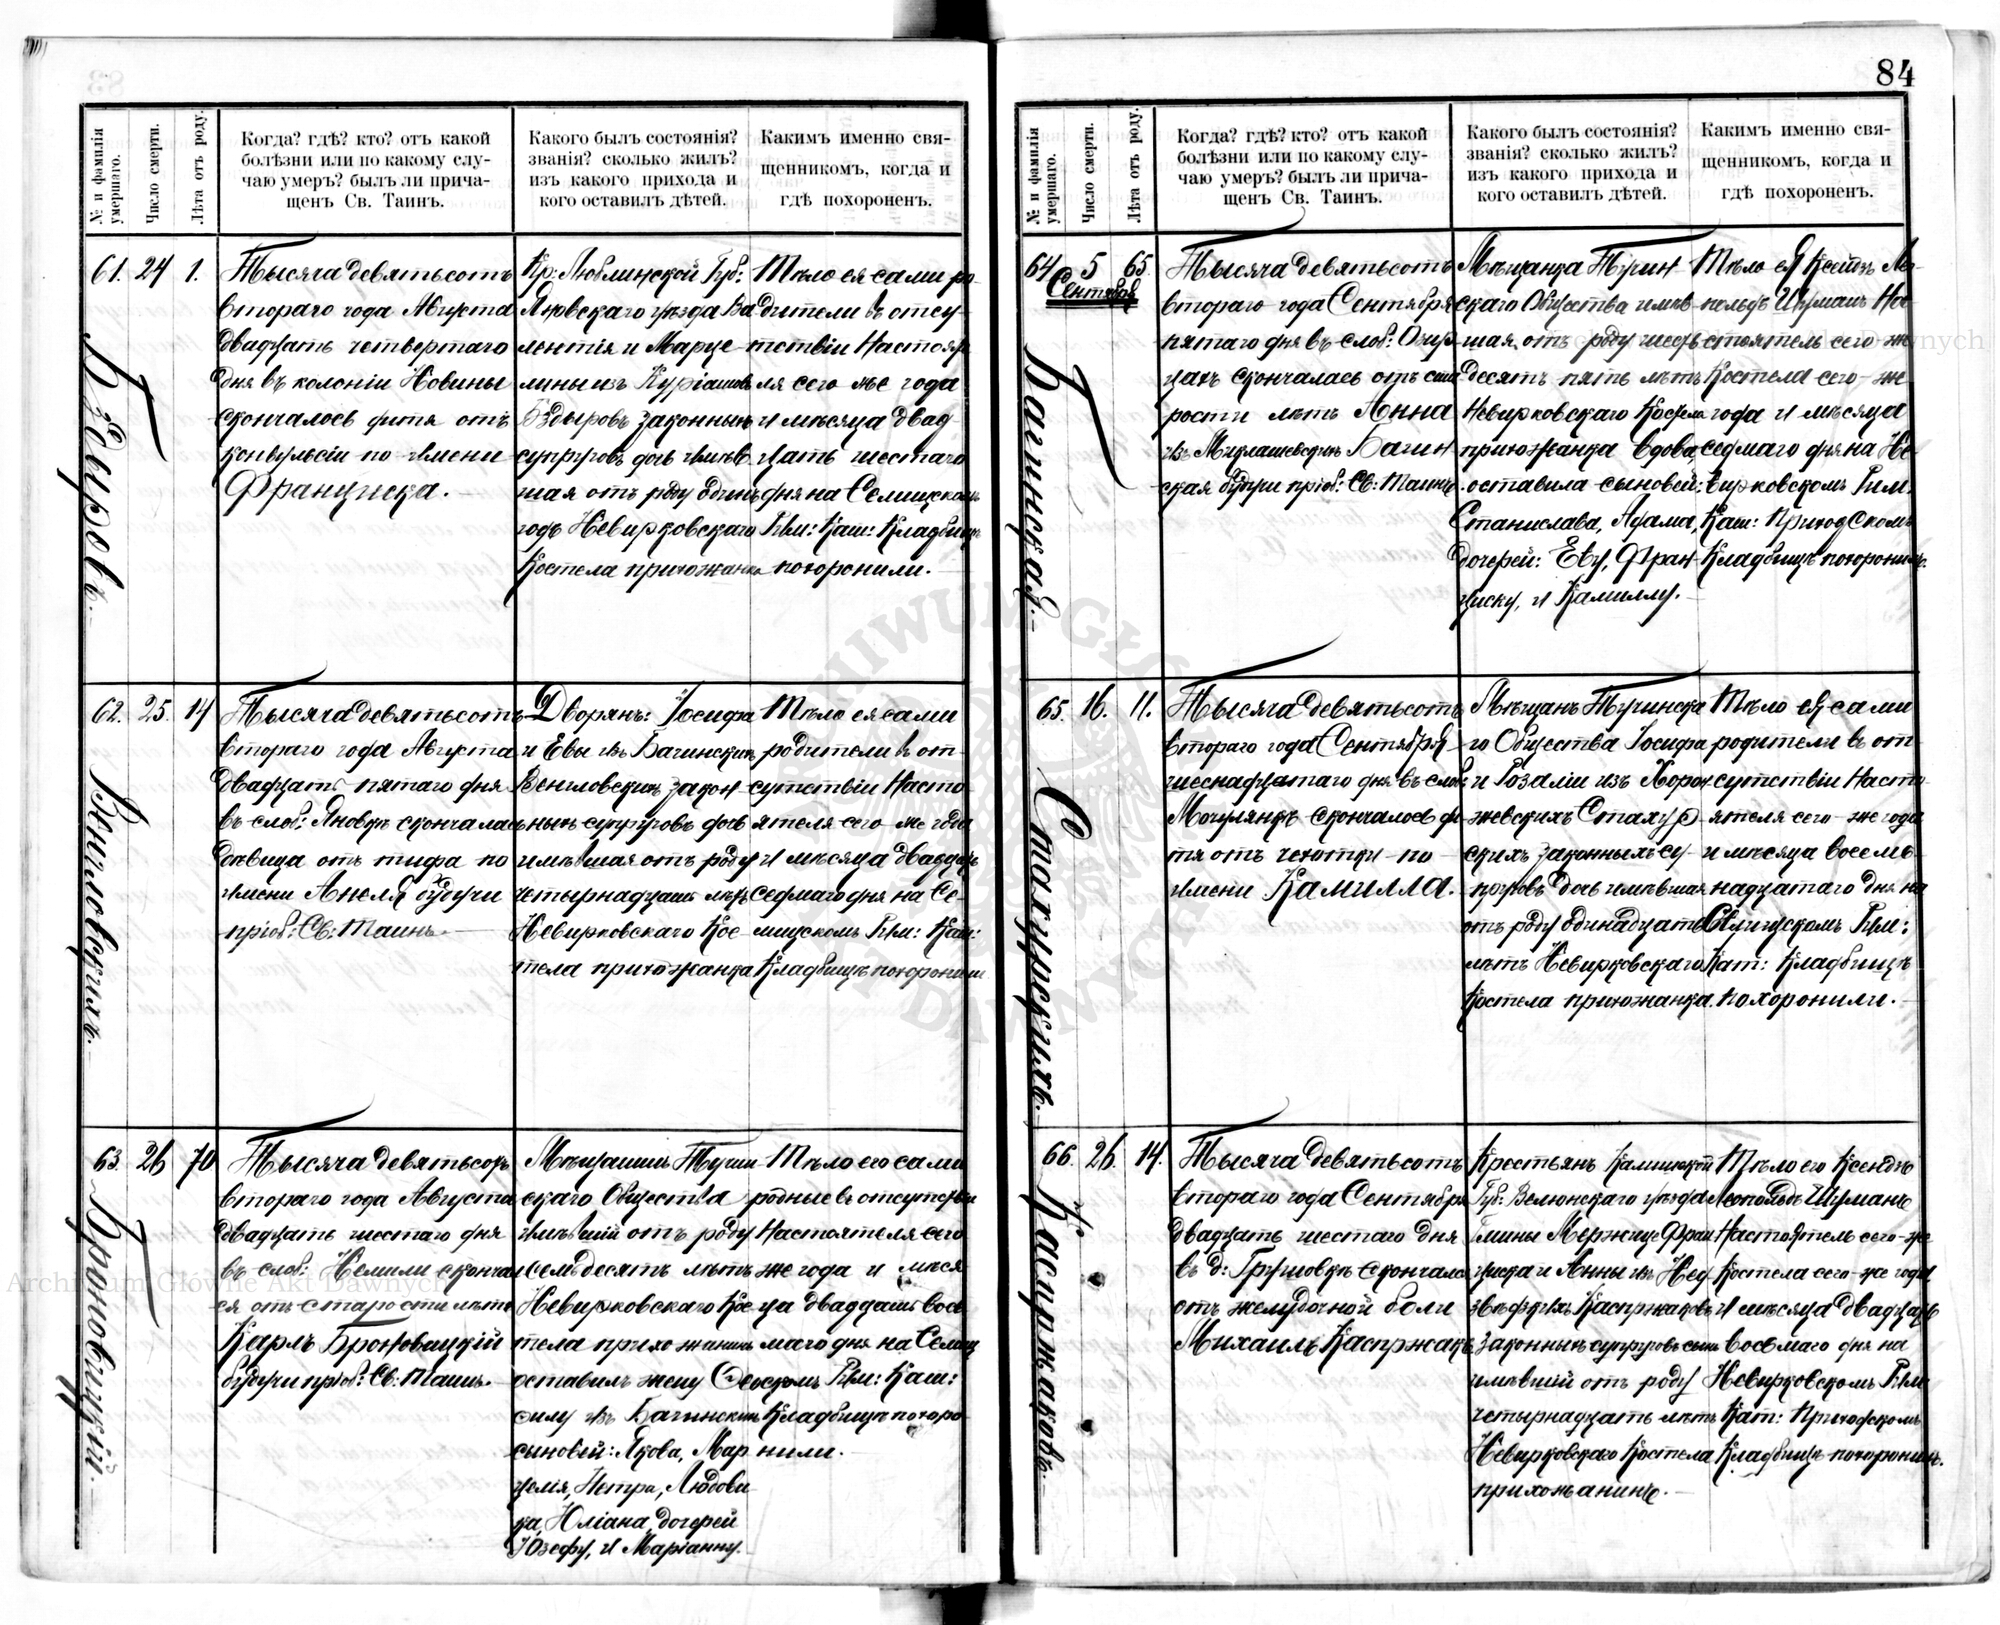 84
№ и фамилія умершаго.
Число смерти.
Лѣта отъ роду.
Когда? гдѣ? кто? отъ какой
болѣзни или по какому слу-
чаю умеръ? былъ ли прича-
щенъ Св. Таинъ.
Какого былъ состоянія?
званія? сколько жилъ?
изъ какого прихода и
кого оставилъ дѣтей.
Какимъ именно свя-
щенникомъ, когда и
гдѣ похороненъ.
61. 24 1.
Бздыровъ.
Тысяча девятьсотъ
втораго года Августа
двадцать четвертаго
дня въ колоніи Новины
скончалось дитя отъ
конвульсіи по имени
Франциска.
Кр: Люблинской Губ:
Яновскаго уѣзда Ва
лентія и Марце-
лины изъ
Бздыровъ законныхъ
супруговъ дочь имѣв
шая отъ роду одинъ
годъ Невирковскаго
Костела прихожанка
Тѣло ея сами ро-
дители въ отсу-
тствіи Настоя
ля сего же года
и мѣсяца двад-
цать шестаго
дня на Селищском
Рим: Кат: Кладбищѣ
похоронили.
62. 25. 14
Венгловскихъ.
Тысяча девятьсотъ
втораго года Августа
двадцать пятаго дня
въ слоб: Яновкѣ скончалась
дѣвица отъ тифа по
имени Анеля будучи
пріоб: Св: Таинъ.
Дворянъ: Іосифа
и Евы изъ Багинскихъ
Венгловскихъ закон-
ныхъ супруговъ дочь
имѣвшая отъ роду
четырнадцать лѣтъ
Невирковскаго Кос-
тела прихожанка
Тѣло ея сами
родители въ от-
сутствіи Насто-
ятеля сего-же года
и мѣсяца двадцать
седмаго дня на Се-
лищскомъ Рим: Кат:
Кладбищѣ похоронили
63. 26 70
Броновицкій.
Тысяча девятьсотъ
втораго года Августа
двадцать шестаго дня
въ слоб: скончал
ся отъ старости лѣтъ
Карлъ Броновицкій
будучи пріоб: Св: Таинъ.
Мѣщанинъ Тучин
скаго Общества
имѣвшій отъ роду
семьдесятъ лѣтъ
Невирковскаго Кос
тела прихожанинъ
оставилъ жену Ѳео
филу изъ Багинскихъ
сыновей: Якова, Мар
целія, Петра, Людови
ка, Юліана, дочерей
Юзефу, и Маріанну.
Тѣло его сами
родные въ отсутствіи
Настоятеля сего
же года и мѣся
ца двадцать вось
маго дня на Селищ
скомъ Рим: Кат:
Кладбищѣ похоро-
нили.
№ и фамилія умершаго.
Число смерти.
Лѣта отъ роду.
Когда? гдѣ? кто? отъ какой
болѣзни или по какому слу-
чаю умеръ? былъ ли прича-
щенъ Св. Таинъ.
Какого былъ состоянія?
званія? сколько жилъ?
изъ какого прихода и
кого оставилъ дѣтей.
Какимъ именно свя-
щенникомъ, когда и
гдѣ похороненъ.
64 5 65.
Сентябрь
Багинская.
Тысяча девятьсотъ
втораго года Сентября
пятаго дня въ слоб:
скончалась отъ ста
рости лѣтъ Анна
изъ Багин
ская будучи пріоб: Св: Таинъ
Мѣщанка Тучин-
скаго Общества имѣв
шая отъ роду шесть
десятъ пять лѣтъ
Невирковскаго Костела
прихожанка вдова,
оставила сыновей:
Станислава, Адама,
дочерей: Еву, Фран-
циску, и Камиллу.
Тѣло ея Ксендзъ Ле-
опольдъ Шуманъ На
стоятель сего же
Костела сего-же
года и мѣсяца
седмаго дня на Не-
вирковскомъ Рим.
Кат: Приходскомъ
Кладбищѣ похоронилъ.
65. 16. 11.
Стахурскихъ.
Тысяча девятьсотъ
втораго года Сентября
шеснадцатаго дня въ слоб:
Мочулянкѣ скончалось ди
тя отъ чехотки по
имени Камилла.
Мѣщанъ Тучинска
го Общества Іосифа
и Розаліи изъ Хорон
жевскихъ Стахур
скихъ законныхъ су-
пруговъ дочь имѣвшая
отъ роду одинадцать
лѣтъ Невирковскаго
Костела прихожанка.
Тѣло ея сами
родители въ от
сутствіи Насто
ятеля сего-же года
и мѣсяца восемь
надцатаго дня на
Селищскомъ Рим:
Кат: Кладбищѣ
похоронили.
66. 26. 14.
Каспржаковъ.
Тысяча девятьсотъ
втораго года Сентября
двадцать шестаго дня
въ д: Грушовкѣ скончался
отъ желудочной боли
Михаилъ Каспржакъ
Крестьянъ Калишской
Губ: Велюнскаго уѣзда
Гмины Фран
циска и Анны изъ
Каспржаковъ
законныхъ супруговъ сынъ
имѣвшій отъ роду
четырнадцать лѣтъ
Невирковскаго Костела
прихожанинъ.
Тѣло его Ксендзъ
Леопольдъ Шуманъ
Настоятель сего-же
Костела сего-же года
и мѣсяца двадцать
восьмаго дня на
Невирковскомъ Рим
Кат: Приходскомъ
Кладбищѣ похоронилъ.
Archiwum Główne Akt Dawnych